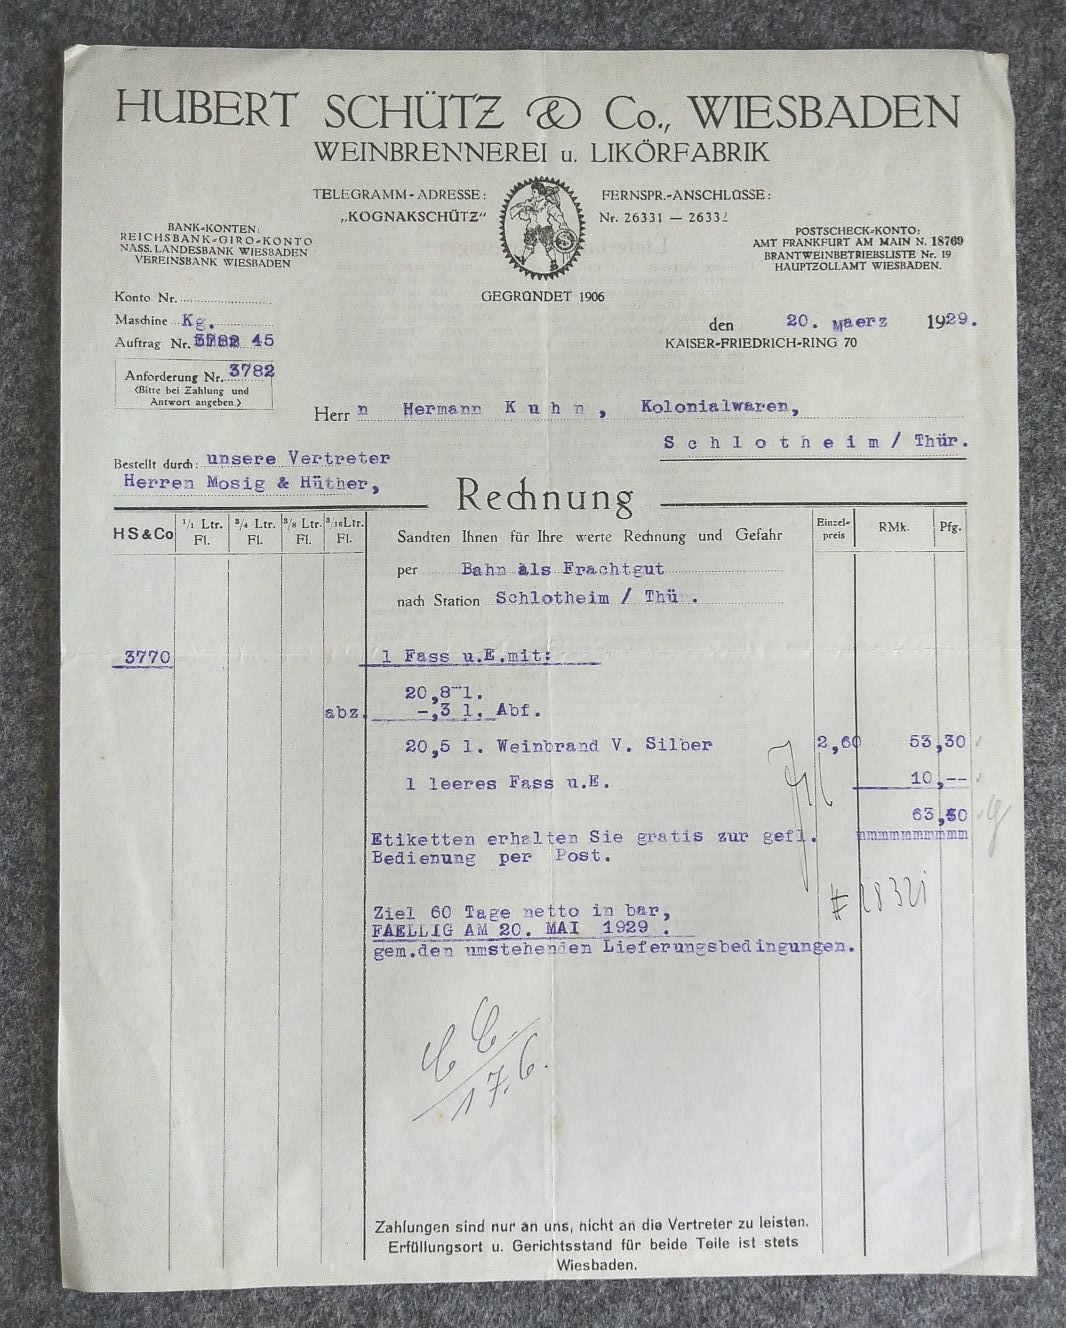 HUBERT SCHÜTZ & Co., WIESBADEN
WEINBRENNEREI u. LIKÖRFABRIK
TELEGRAMM-ADRESSE:
„KOGNAKSCHÜTZ“
FERNSPR.-ANSCHLÜSSE:
Nr. 26331 — 26332
BANK-KONTEN:
REICHSBANK-GIRO-KONTO
NASS. LANDESBANK WIESBADEN
VEREINSBANK WIESBADEN
POSTSCHECK-KONTO:
AMT FRANKFURT AM MAIN N. 18769
BRANTWEINBETRIEBSLISTE Nr. 19
HAUPTZOLLAMT WIESBADEN.
GEGRÜNDET 1906
Konto Nr.
Maschine Kg.
Auftrag Nr. 45
Anforderung Nr. 3782
(Bitte bei Zahlung und
Antwort angeben.)
den 20. Maerz 1929.
KAISER-FRIEDRICH-RING 70
Herrn Hermann Kuhn, Kolonialwaren,
Schlotheim / Thür.
Bestellt durch: unsere Vertreter
Herren Mosig & Hüther,
Rechnung
HS&Co 1/1 Ltr. Fl. 3/4 Ltr. Fl. 3/8 Ltr. Fl. 3/16 Ltr. Fl.
Einzelpreis RMk. Pfg.
Sandten Ihnen für Ihre werte Rechnung und Gefahr
per Bahn als Frachtgut
nach Station Schlotheim / Thü .
3770 1 Fass u.E.mit:
20,8 l.
abz. -,3 l. Abf.
20,5 l. Weinbrand V. Silber 2,60 53,30
1 leeres Fass u.E. 10,--
63,30
Etiketten erhalten Sie gratis zur gefl.
Bedienung per Post.
Ziel 60 Tage netto in bar,
FAELLIG AM 20. MAI 1929 .
gem.den umstehenden Lieferungsbedingungen.
17.6.
Zahlungen sind nur an uns, nicht an die Vertreter zu leisten.
Erfüllungsort u. Gerichtsstand für beide Teile ist stets
Wiesbaden.